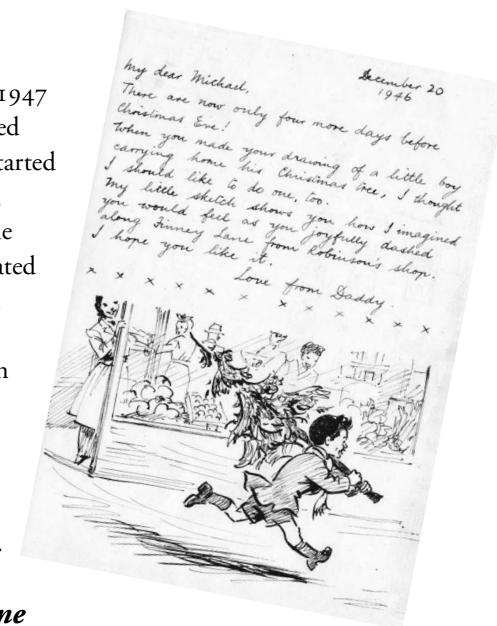 1947
ed
tarted
e
ated
n
.
ne
December 20
1946
My dear Michael,
There are now only four more days before
Christmas Eve!
When you made your drawing of a little boy
carrying home his Christmas tree, I thought
I should like to do one, too.
My little sketch shows you how I imagined
you would feel as you joyfully dashed
along Finney Lane from Robinson's shop.
I hope you like it.
Love from Daddy.
x x x x x x x x x x x x